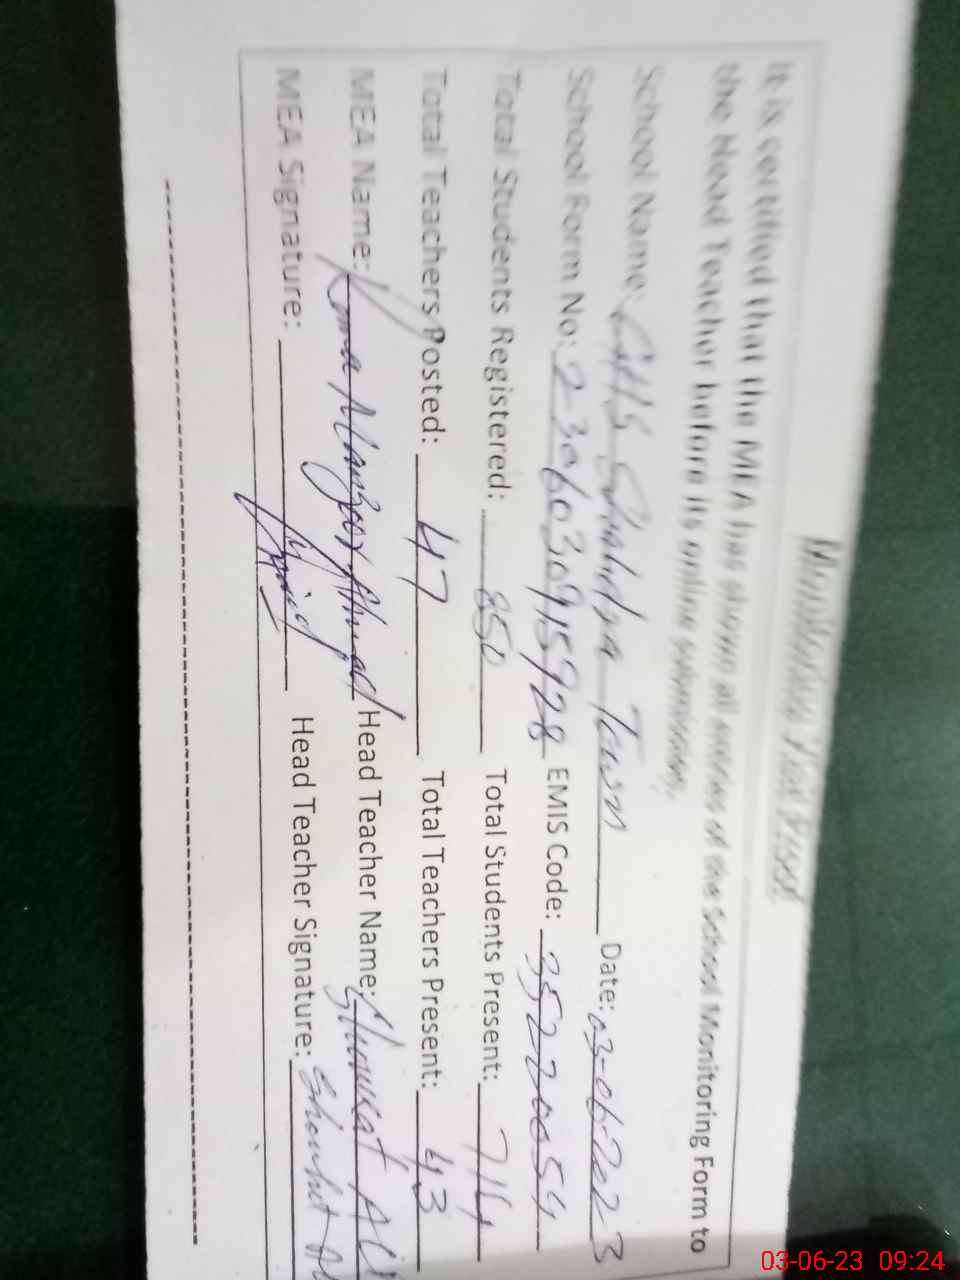 Monitoring Visit Proof
It is certified that the MEA has shown all entries of the School Monitoring Form to
the Head Teacher before its online submission.
School Name: GHS Shahdra Town Date: 03-06-2023
School Form No: 2306030915928 EMIS Code: 35270054
Total Students Registered: 850 Total Students Present: 714
Total Teachers Posted: 47 Total Teachers Present: 43
MEA Name: Rana Manzoor Ahmad Head Teacher Name: Shoukat Ali
MEA Signature: Head Teacher Signature: Shoukat
03-06-23 09:24